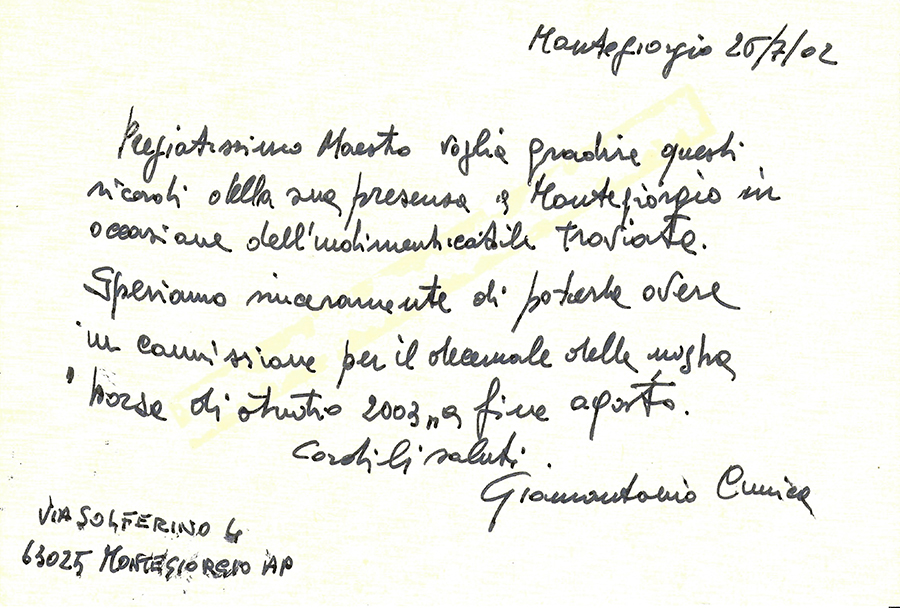 Montegiorgio 26/7/02
Pregiatissimo Maestro voglia gradire questi
ricordi della sua presenza a Montegiorgio in
occasione dell'indimenticabile Traviata.
Speriamo sinceramente di poterla avere
in commissione per il decennale della nostra
"borsa di studio 2003" a fine agosto.
Cordili saluti.
Giamantonio
VIA SOLFERINO 4
63025 MONTEGIORGIO AP